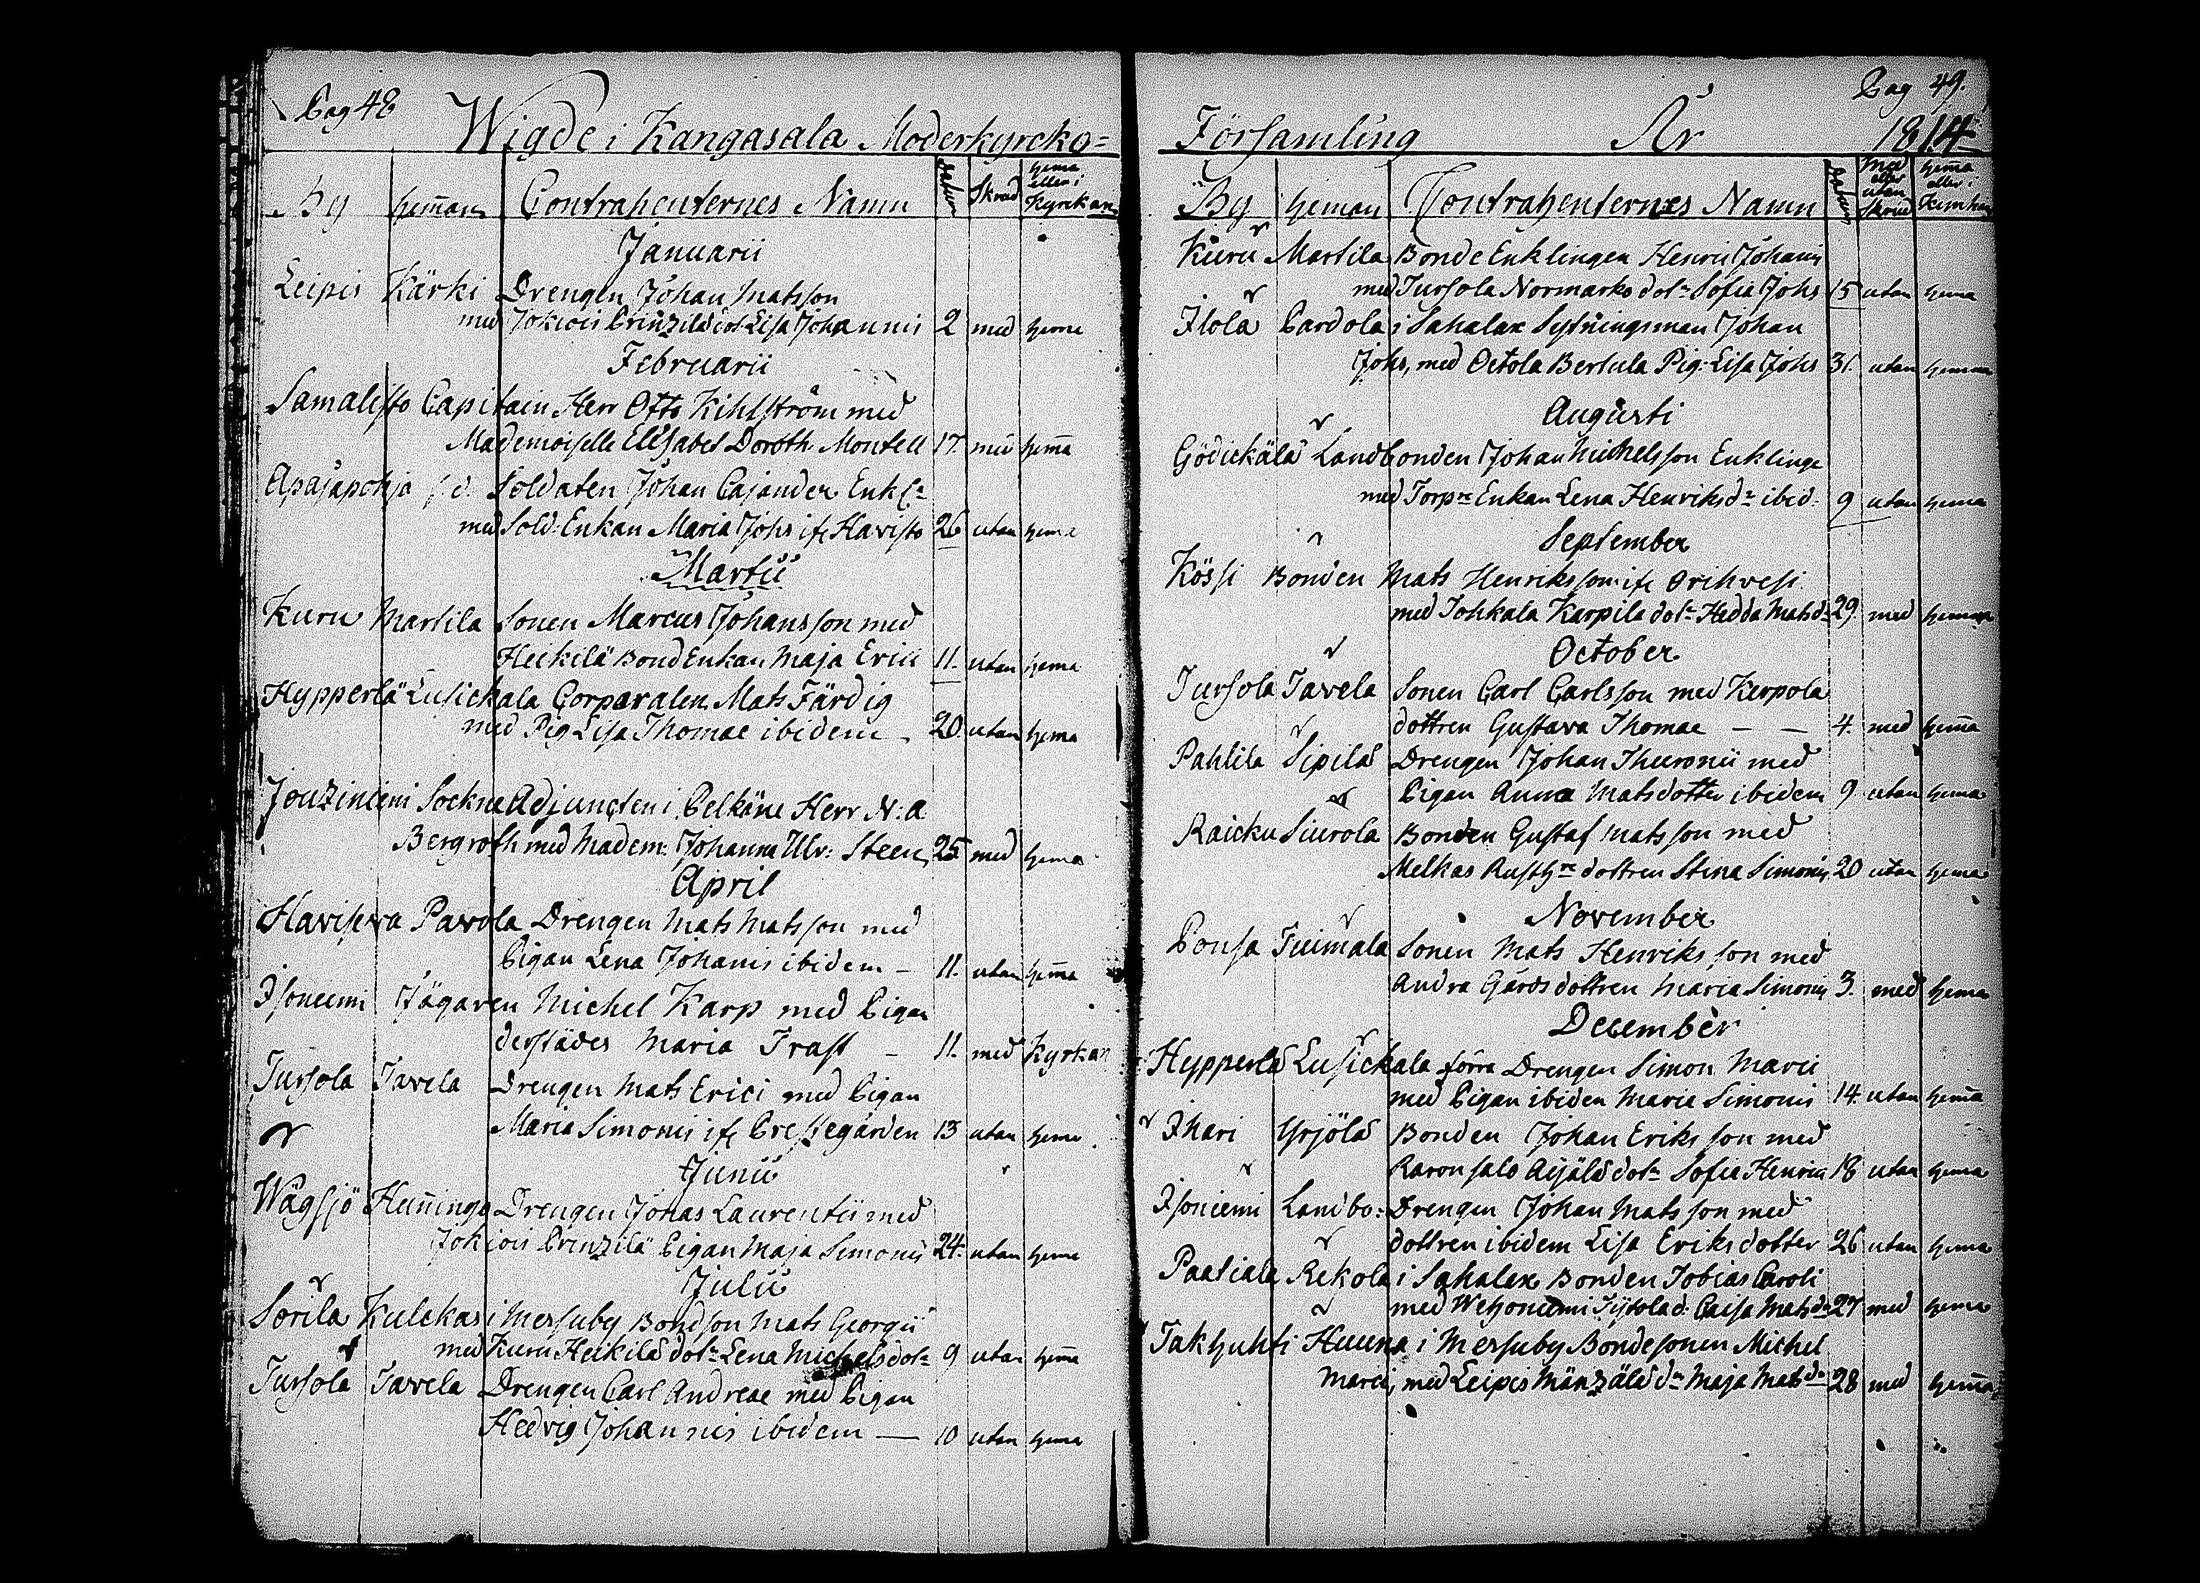 Pag 48
Wigde i Kangasala Moderkyrcko=
By Hemman Contrahenternes Namn Datum Skrud hema eller i Kyrckan
Januarii
Leipis Kärki Drengen Johan Matsson
med Jokiois Prinzilä dot: Lisa Johannis 2 med hema
Februarii
Samalisto Capitain Herr Otto Kihlström med
Mademoiselle Elisabet Doroth: Montell 17. med hema
Apajapohja f.d. Soldaten Johan Cajander Enkl:
med Sold: Enkan Maria Johs ifr Havisto 26 utan hema
Martii
Kuru Martila Sonen Marcus Johansson med
Heikilä Bond Enkan Maja Erici 11. utan hema
Hypperlä Lusickala Corporalen Mats Färdig
med Pig Lisa Thomae ibidem 20 utan hema
Jouziniemi Sockne Adjuncten i Pelkäne Herr N: a
Bergroth med Madem: Johanna Ulr: Steen 25 med hema
April
Havisewa Pavola Drengen Mats Matsson med
Pigan Lena Johanis ibidem – 11. utan hema
Isoniemi Jägaren Michel Karp med Pigan
derstädes Maria Trast – 11. med Kyrkan
Tursola Tavela Drengen Mats Erici med Pigan
Maria Simonis ifr Prestegården 13 utan hema
Junii
Wägsjö Hemmings Drengen Jonas Laurentii med
Jokiois Prinzilä Pigan Maja Simonis 24. utan hema
Julii
Sorila Kulckas i Messuby Bondson Mats Georgii
med Kuru Heikilä dotr Lena Michelsdotr 9 utan hema
Tursola Tavela Drengen Carl Andreae med Pigan
Hedvig Johannis ibidem — 10 utan hema
Pag 49.
Församling År 1814
By Heman Contrahenternes Namn Datum Med eller utan Skrud hema eller i Kyrckan
Kuru Martila Bonde Enklingen Henric Johanis
med Tursola Normarko dotr Sofia Johs 15 utan hema
Ilola Pardola i Sahalax Sytningsman Johan
Johs, med Oetola Bertula Pig: Lisa Johs 31. utan hemma
Augusti
Gödickälä Landbonden Johan Michelsson Enklinge
med Torpre Enkan Lena Henriksdr ibid: 9 utan hema
September
Kössi Bonden Mats Henriksson ifr Orihvesi
med Tohkala Karpila dotr Hedda Matsdr 29. med hemma
October
Tursola Tavela Sonen Carl Carlsson med Kerpola
dottren Gustava Thomae — — 4. med hema
Pahtila Sipilä Drengen Johan Theeronii med
Pigan Anna Matsdotter ibidem 9 utan hema
Raicku Siurola Bonden Gustaf Matsson med
Melkas Rusthre dottren Stina Simonis 20 utan hema
November
Ponsa Tuimala Sonen Mats Henriksson med
Andra Gårds dottren Maria Simonis 3. med hema
December
Hypperlä Lusickala förra Drengen Simon Marci
med Pigan ibiden Maria Simonis 14. utan hema
Ihari Yrjölä Bonden Johan Eriksson med
Raronsalo Aijälä dotr Sofia Henrici 18 utan hema
Isoniemi Landbo= Drengen Johan Matsson med
dottren ibidem Lisa Eriksdotter 26 utan hema
Paatiala Rekola i Sahalax Bonden Tobias Caroli
med Wehoniemi Tÿtola d: Caisa Matsdr 27 med hema
Takhuhti Huuna i Messuby Bondesonen Michel
Marci, med Leipis Mänzälä dr Maja Matsdr 28 med hema